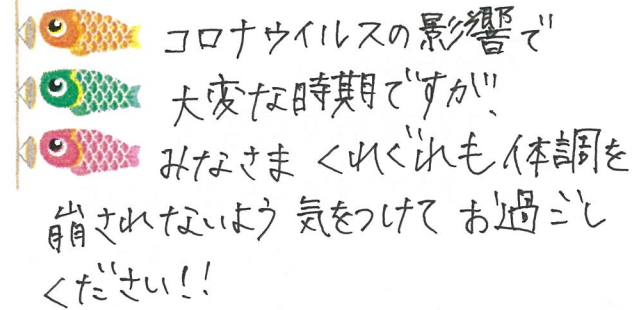 コロナウイルスの影響で
大変な時期ですが、
みなさま くれぐれも体調を
崩されないよう 気をつけて お過ごし
ください!!